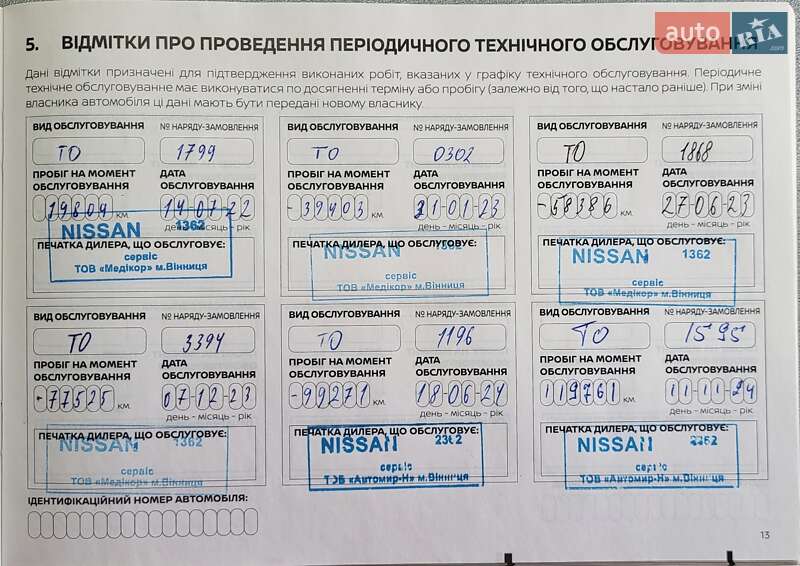 auto RIA.com
5. ВІДМІТКИ ПРО ПРОВЕДЕННЯ ПЕРІОДИЧНОГО ТЕХНІЧНОГО ОБСЛУГОВУВАННЯ
Дані відмітки призначені для підтвердження виконаних робіт, вказаних у графіку технічного обслуговування. Періодичне
технічне обслуговуванне має виконуватися по досягненні терміну або пробігу (залежно від того, що настало раніше). При зміні
власника автомобіля ці дані мають бути передані новому власнику.
ВИД ОБСЛУГОВУВАННЯ № НАРЯДУ-ЗАМОВЛЕННЯ
ТО 1799
ПРОБІГ НА МОМЕНТ ОБСЛУГОВУВАННЯ ДАТА ОБСЛУГОВУВАННЯ
19804 км 14-07-22
день - місяць - рік
ПЕЧАТКА ДИЛЕРА, ЩО ОБСЛУГОВУЄ:
NISSAN 1362
сервіс
ТОВ «Медікор» м.Вінниця
ВИД ОБСЛУГОВУВАННЯ № НАРЯДУ-ЗАМОВЛЕННЯ
ТО 0302
ПРОБІГ НА МОМЕНТ ОБСЛУГОВУВАННЯ ДАТА ОБСЛУГОВУВАННЯ
-39403 км 21-01-23
день - місяць - рік
ПЕЧАТКА ДИЛЕРА, ЩО ОБСЛУГОВУЄ:
NISSAN 1362
сервіс
ТОВ «Медікор» м.Вінниця
ВИД ОБСЛУГОВУВАННЯ № НАРЯДУ-ЗАМОВЛЕННЯ
ТО 1868
ПРОБІГ НА МОМЕНТ ОБСЛУГОВУВАННЯ ДАТА ОБСЛУГОВУВАННЯ
-58386 км 27-06-23
день - місяць - рік
ПЕЧАТКА ДИЛЕРА, ЩО ОБСЛУГОВУЄ:
NISSAN 1362
сервіс
ТОВ «Медікор» м.Вінниця
ВИД ОБСЛУГОВУВАННЯ № НАРЯДУ-ЗАМОВЛЕННЯ
ТО 3394
ПРОБІГ НА МОМЕНТ ОБСЛУГОВУВАННЯ ДАТА ОБСЛУГОВУВАННЯ
-77525 км 07-12-23
день - місяць - рік
ПЕЧАТКА ДИЛЕРА, ЩО ОБСЛУГОВУЄ:
NISSAN 1362
сервіс
ТОВ «Медікор» м.Вінниця
ВИД ОБСЛУГОВУВАННЯ № НАРЯДУ-ЗАМОВЛЕННЯ
ТО 1196
ПРОБІГ НА МОМЕНТ ОБСЛУГОВУВАННЯ ДАТА ОБСЛУГОВУВАННЯ
-99271 км 18-06-24
день - місяць - рік
ПЕЧАТКА ДИЛЕРА, ЩО ОБСЛУГОВУЄ:
NISSAN 2362
сервіс
ТОВ «Автомир-Н» м.Вінниця
ВИД ОБСЛУГОВУВАННЯ № НАРЯДУ-ЗАМОВЛЕННЯ
ТО 1595
ПРОБІГ НА МОМЕНТ ОБСЛУГОВУВАННЯ ДАТА ОБСЛУГОВУВАННЯ
119761 км 11-11-24
день - місяць - рік
ПЕЧАТКА ДИЛЕРА, ЩО ОБСЛУГОВУЄ:
NISSAN 2362
сервіс
ТОВ «Автомир-Н» м.Вінниця
ІДЕНТИФІКАЦІЙНИЙ НОМЕР АВТОМОБІЛЯ:
13